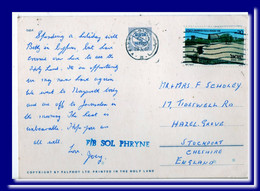 Spending a holiday with
Betty in Cyprus but have
crossed over here to see the
Holy Land. It's an opportunity
we may never have again.
We went to Nazareth today
and are off to Jerusalem in
the morning. The heat is
unbearable. Hope you are
all well.
Love,
P/B SOL PHRYNE
MR & MRS. F. SCHOLEY
17, TIDESWELL RD.
HAZEL GROVE
STOCKPORT
CHESHIRE
ENGLAND
COPYRIGHT BY PALPHOT LTD. PRINTED IN THE HOLY LAND